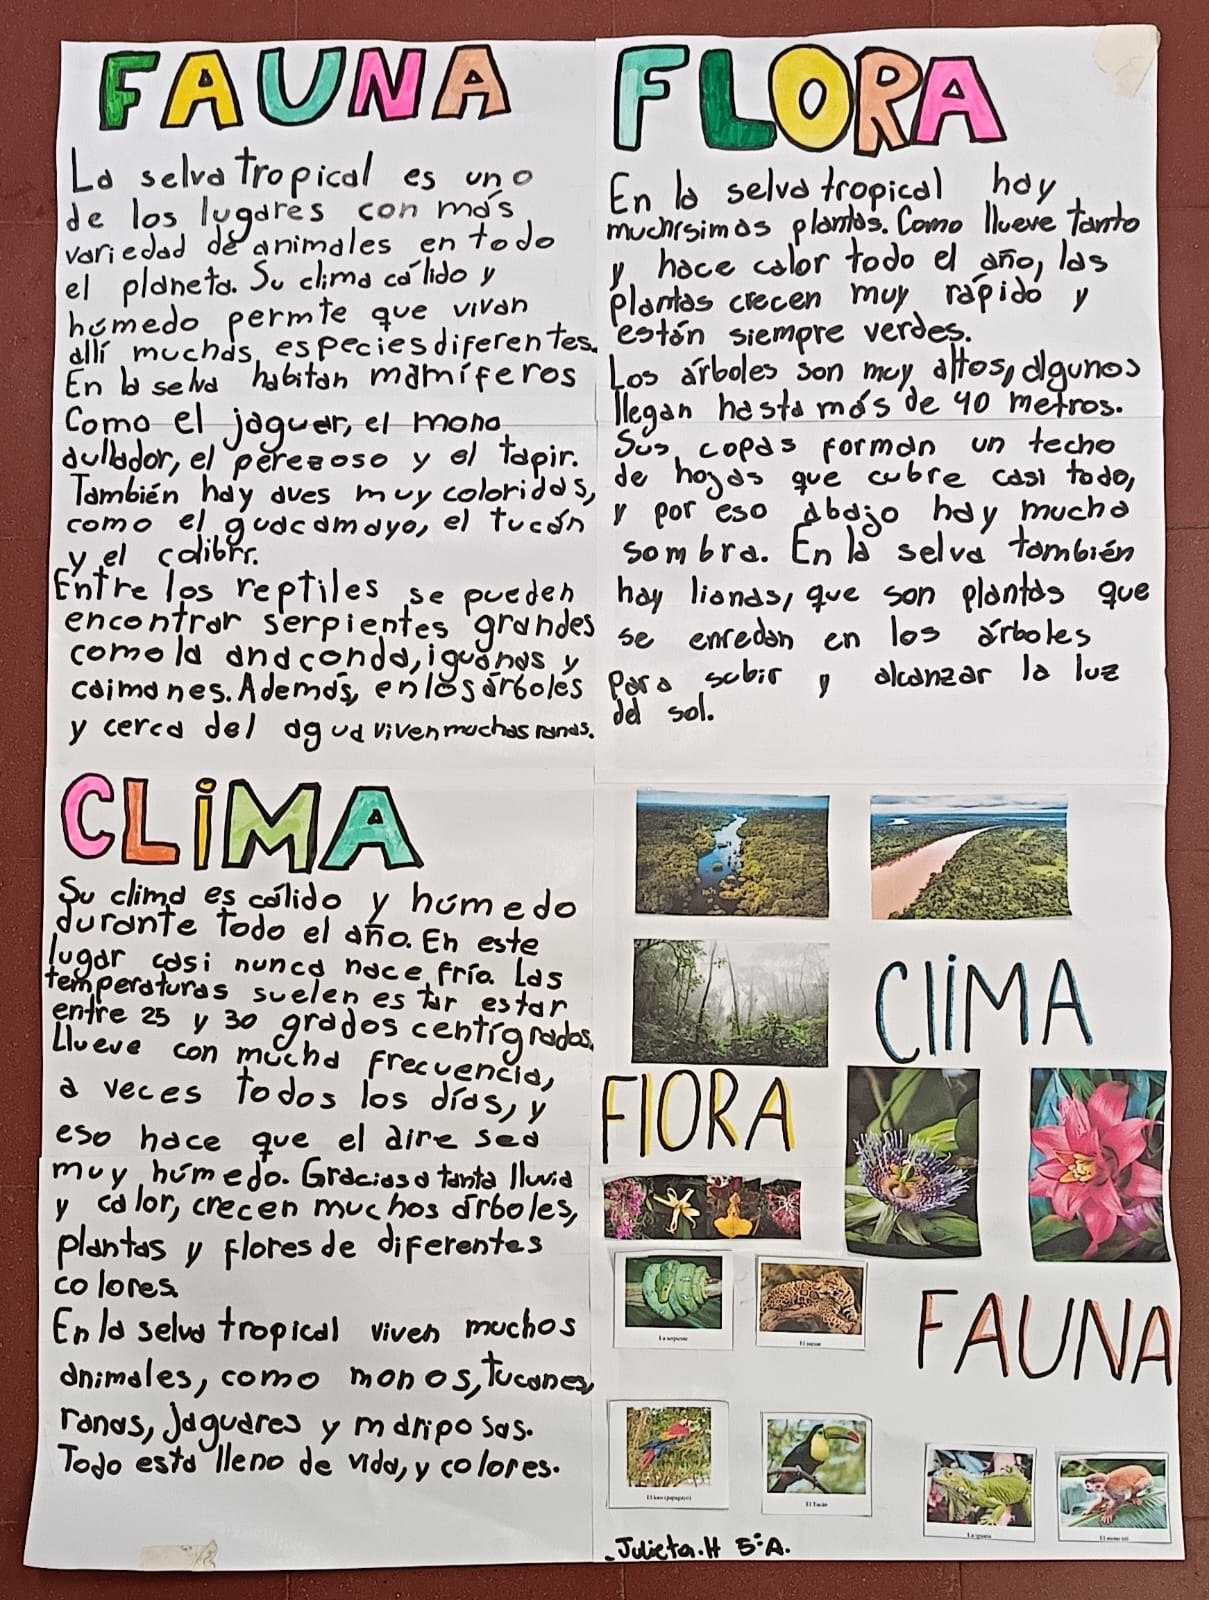 FAUNA
La selva tropical es uno
de los lugares con más
variedad de animales en todo
el planeta. Su clima cálido y
húmedo permte que vivan
allí muchas especies diferentes.
En la selva habitan mamíferos
Como el jaguar, el mono
aullador, el perezoso y el tapir.
También hay aves muy coloridas,
como el guacamayo, el tucán
y el colibrí.
Entre los reptiles se pueden
encontrar serpientes grandes
como la anaconda, iguanas y
caimanes. Además, en los árboles
y cerca del agua viven muchas ranas.
FLORA
En la selva tropical hay
muchísimas plantas. Como llueve tanto
y hace calor todo el año, las
plantas crecen muy rápido y
están siempre verdes.
Los árboles son muy altos, algunos
llegan hasta más de 40 metros.
Sus copas forman un techo
de hojas que cubre casi todo,
y por eso abajo hay mucha
sombra. En la selva también
hay lianas, que son plantas que
se enredan en los árboles
para subir y alcanzar la luz
del sol.
CLiMA
Su clima es cálido y húmedo
durante todo el año. En este
lugar casi nunca hace fría. Las
temperaturas suelen es tar estar
entre 25 y 30 grados centígrados.
Llueve con mucha frecuencia,
a veces todos los días, y
eso hace que el aire sea
muy húmedo. Gracias a tanta lluvia
y calor, crecen muchos árboles,
plantas y flores de diferentes
colores.
En la selva tropical viven muchos
animales, como monos, tucanes,
ranas, jaguares y mariposas.
Todo esta lleno de vida, y colores.
ClIMA
FlORA
La serpiente
FAUNA
El loro (papagayo)
El Tucán
La iguana
El mono tití
Julieta.H 5°A.